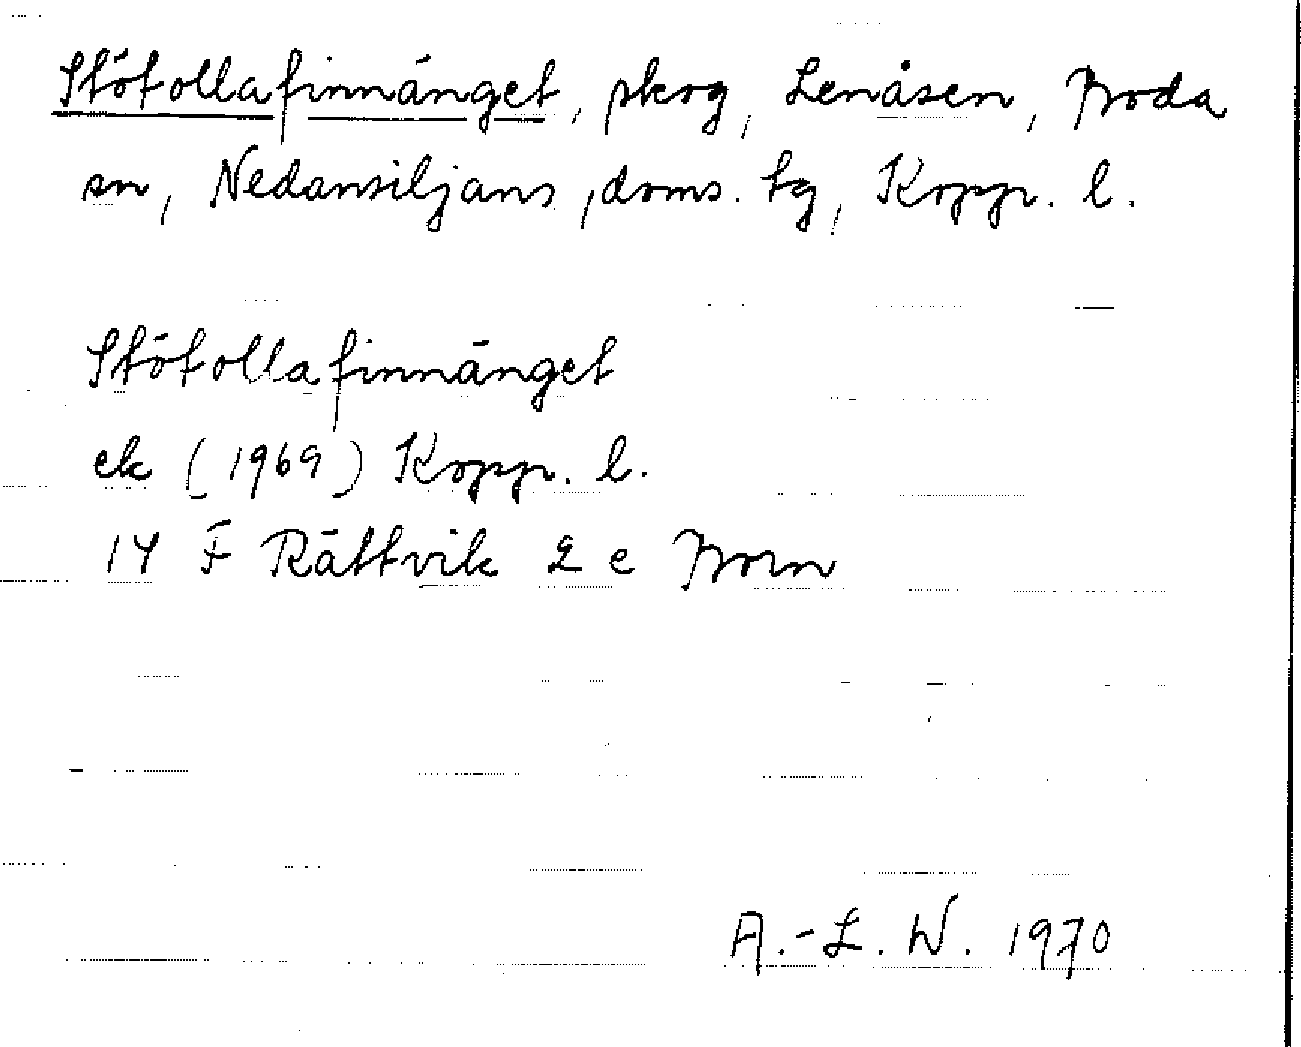 Stötollafinnänget, skog, Lenåsen, Boda
sn, Nedansiljans, doms. tg, Kopp. l.
Stötollafinnänget
ek (1969) Kopp. l.
14 F Rättvik 2 c Born
A.-L. W. 1970